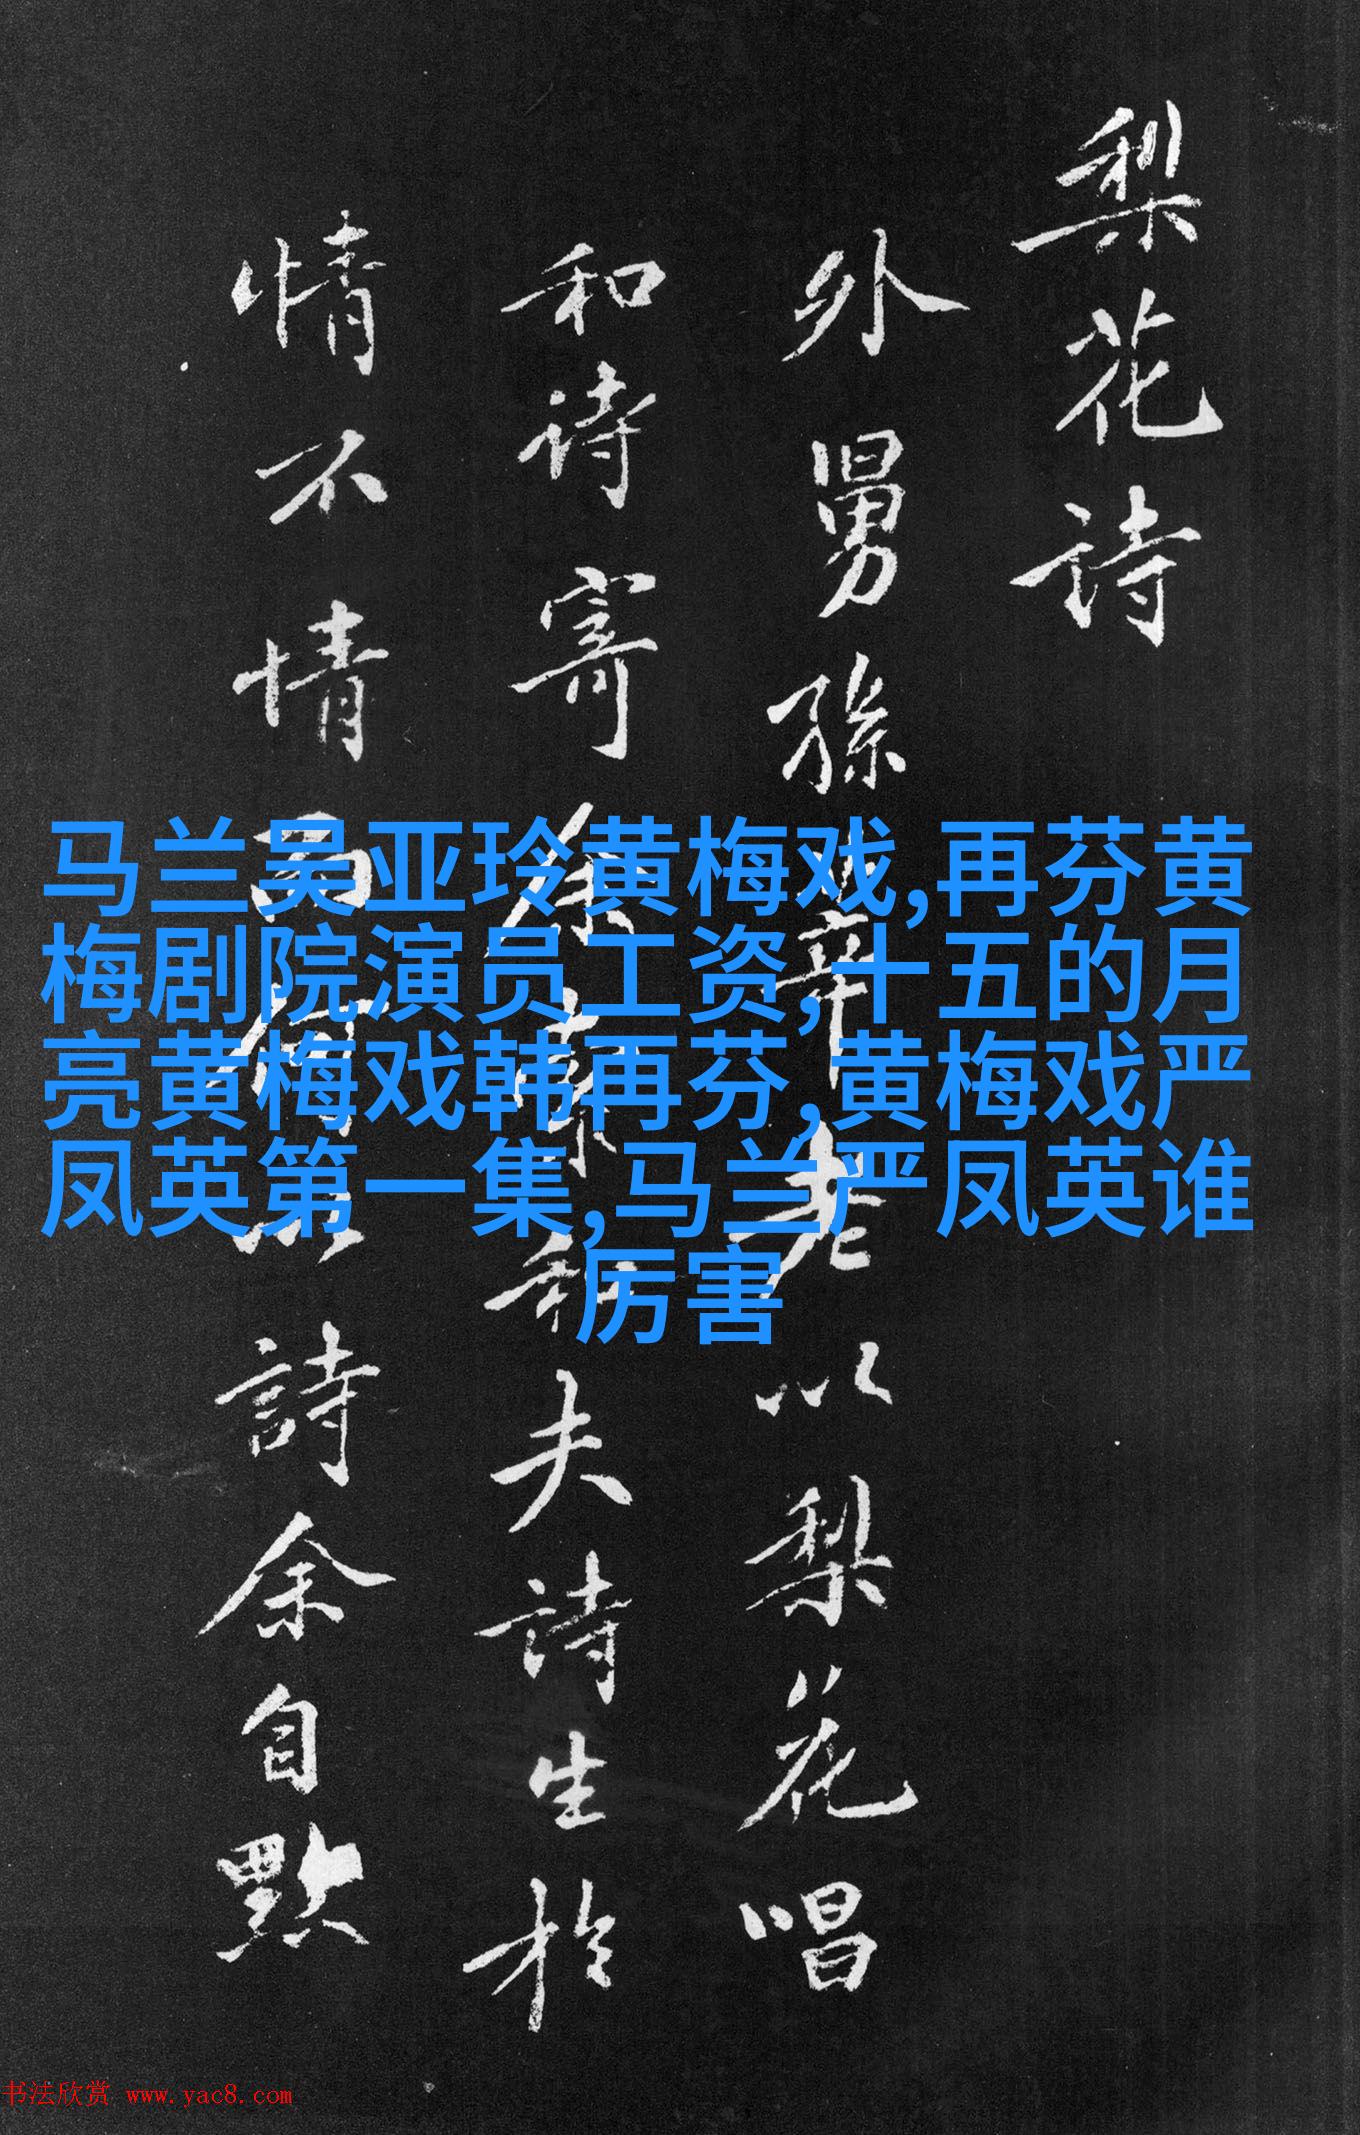 梨花詩
外舅孫莘老以梨花唱
和詩寄徐和夫詩生於
情不情而何以詩余自點
马兰吴亚玲黄梅戏,再芬黄
梅剧院演员工资,十五的月
亮黄梅戏韩再芬,黄梅戏严
凤英第一集,马兰严凤英谁
厉害
书法欣赏 www.yac8.com